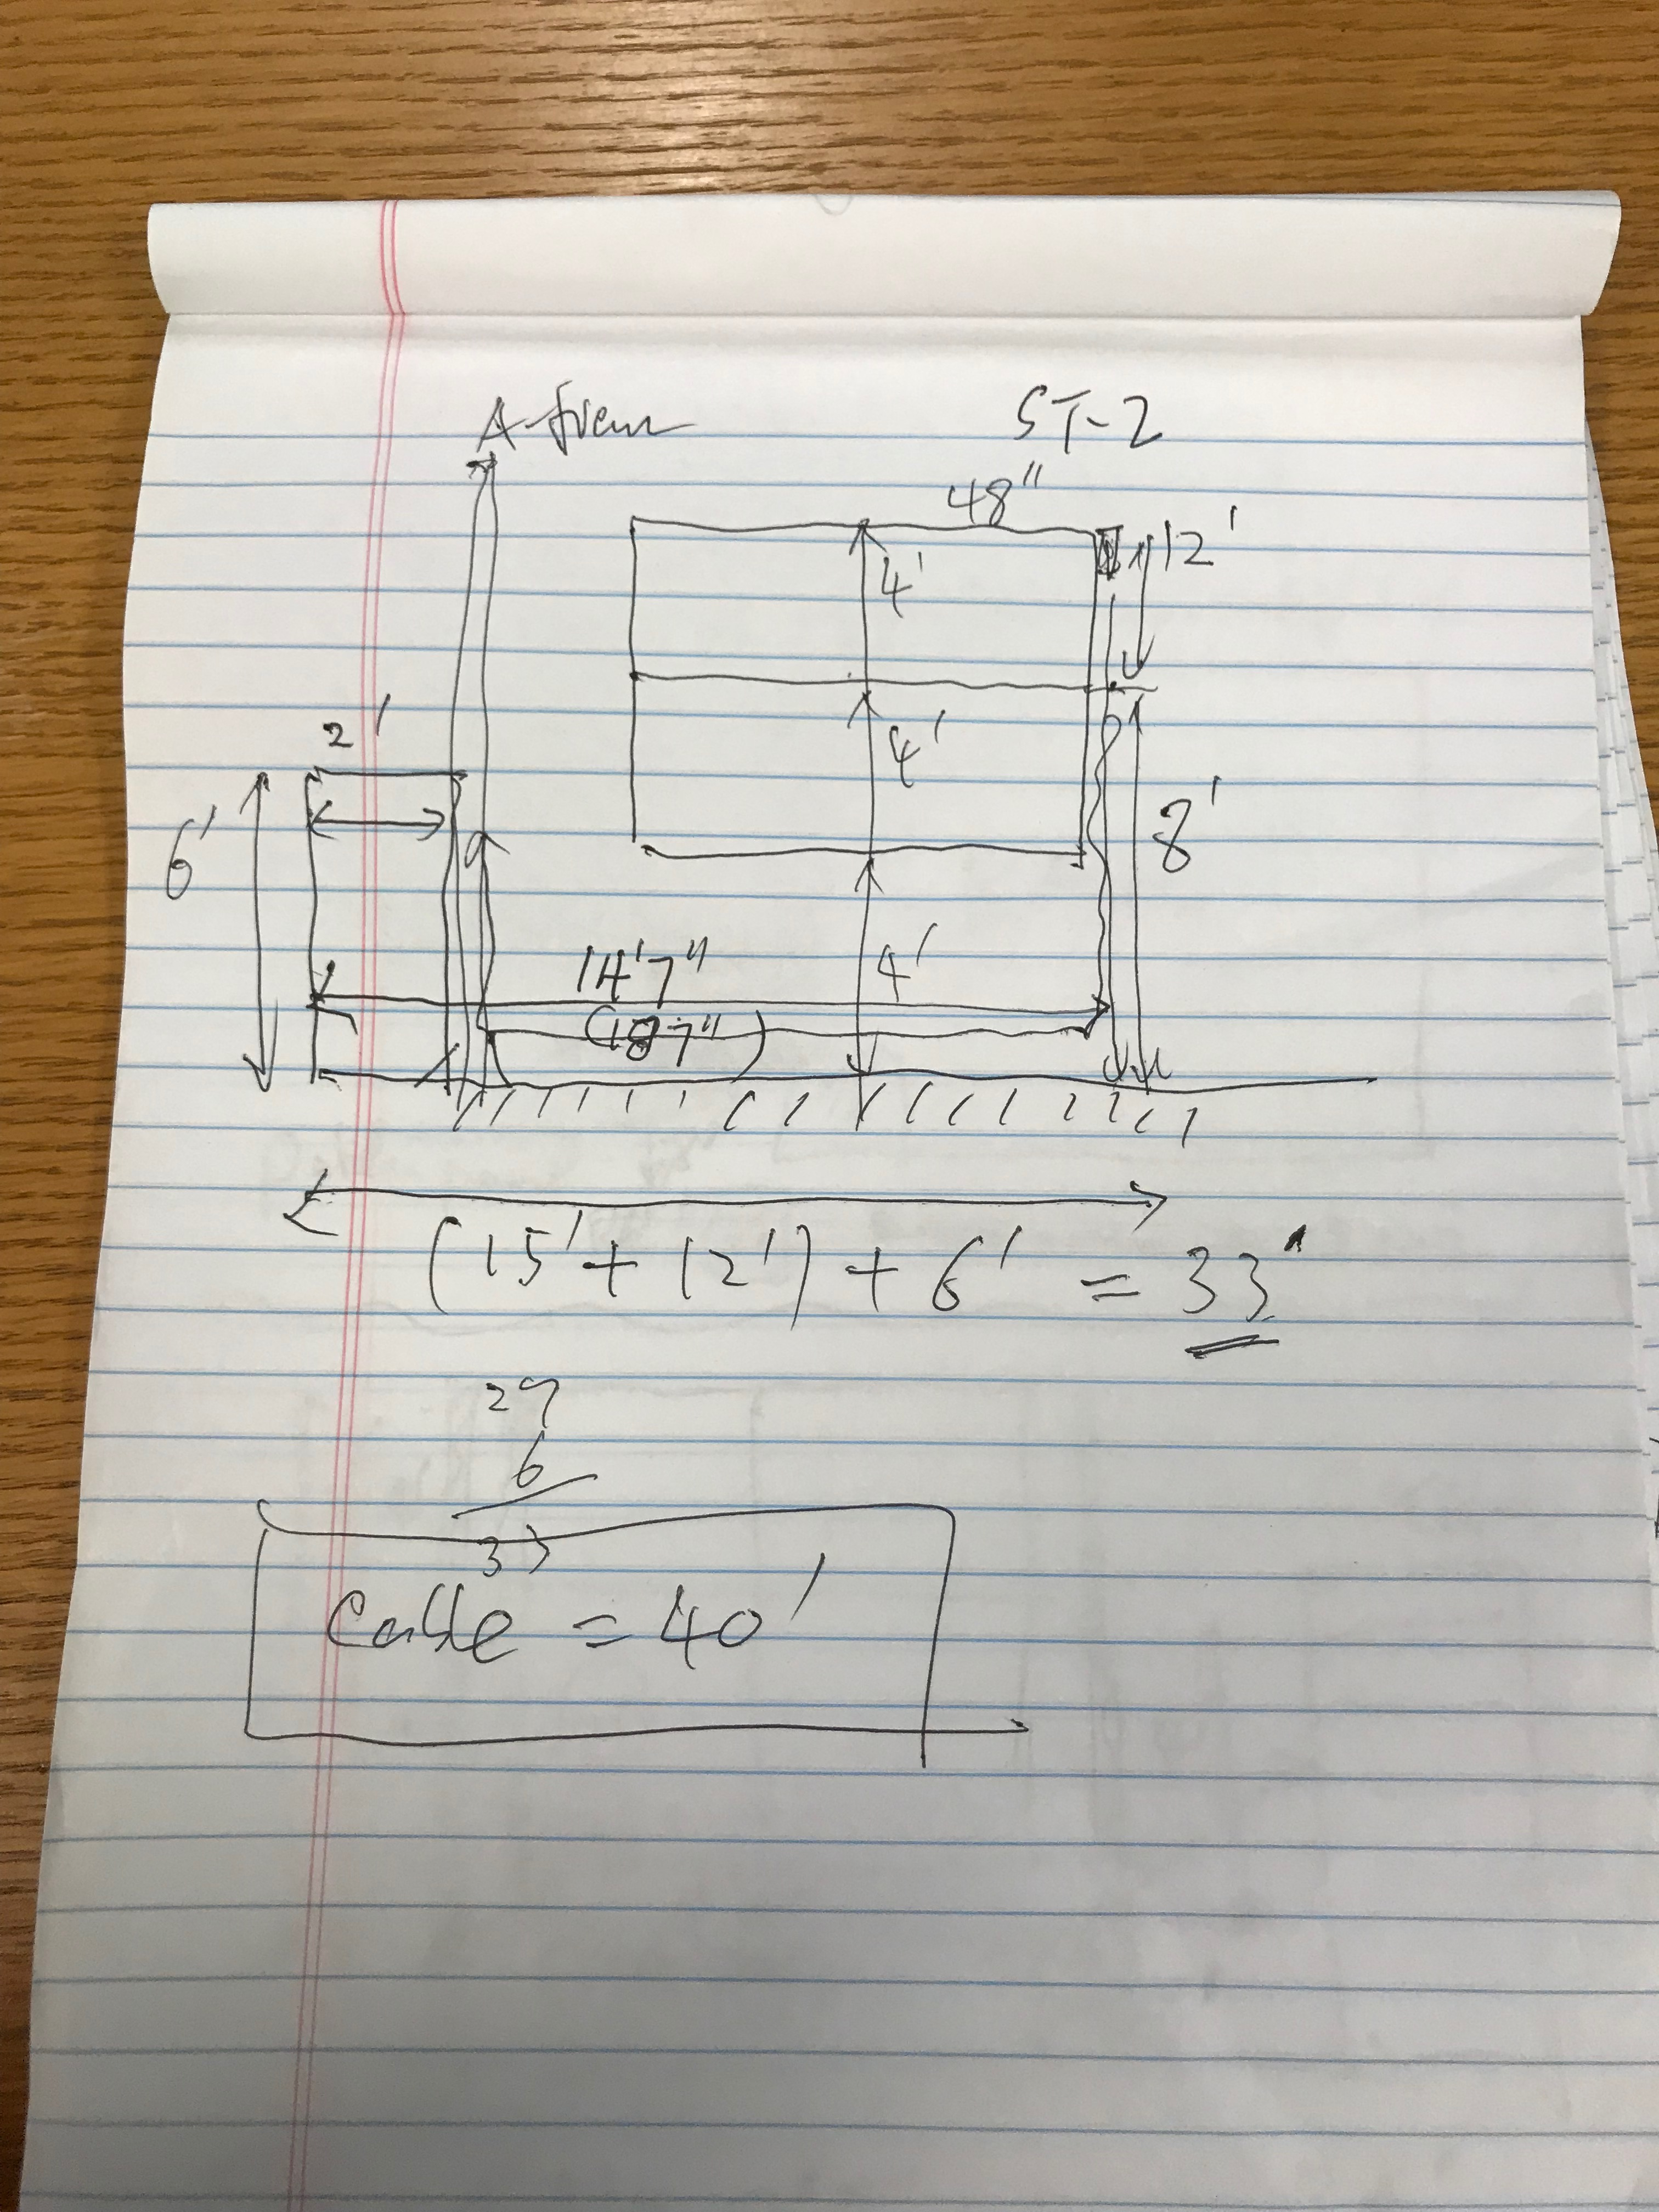 A-fram
ST-2
48"
12'
4'
2'
4'
6'
8'
14'7"
4'
(187")
(15' + 12') + 6' = 33'
27
6
33
Cable = 40'